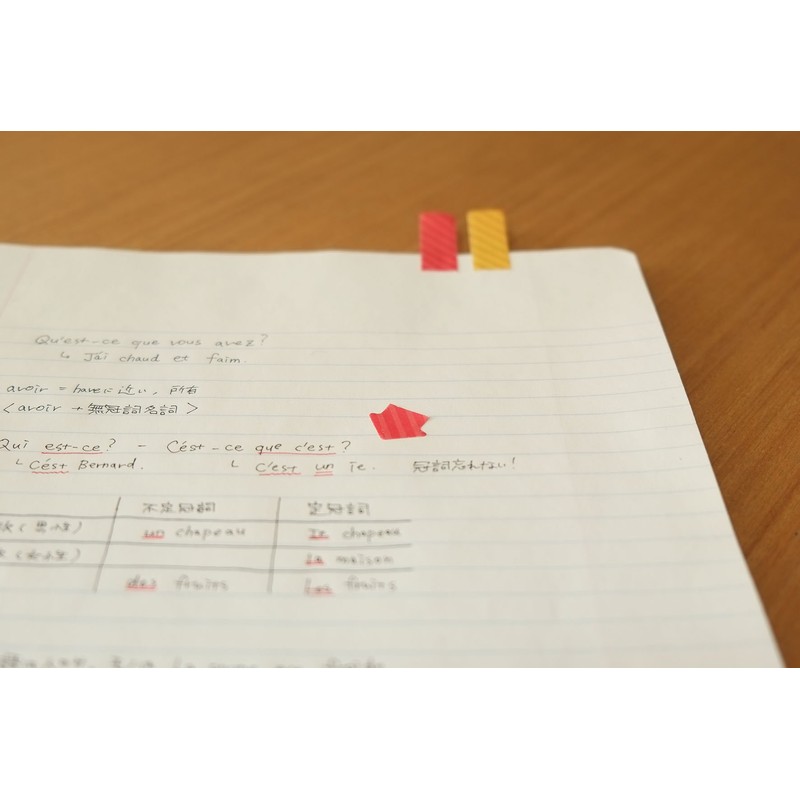 Qu'est-ce que vous avez?
↳ J'ai chaud et faim.
avoir = haveに近い, 所有
<avoir + 無冠詞名詞>
Qui est-ce? - Cést-ce que c'est?
└ Cést Bernard. └ C'est un ie. 冠詞忘れない!
不定冠詞 定冠詞
(男) un chapeau le chapeau
la maison
des les